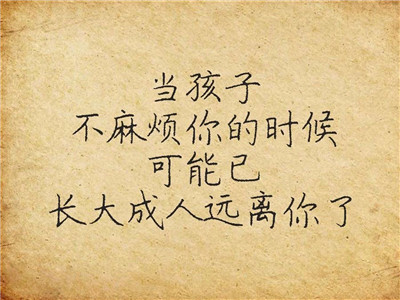 当孩子
不麻烦你的时候
可能已
长大成人远离你了